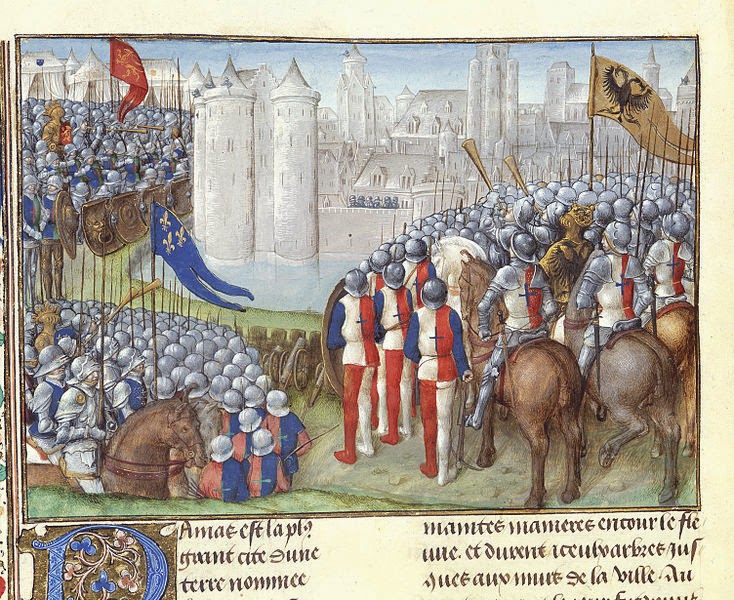 Damas est la pl9
grant cite dune
terre nommee
maintes manieres entour le fle
uue. et durent iceulx arbres jus
ques aux murs de la ville. Au